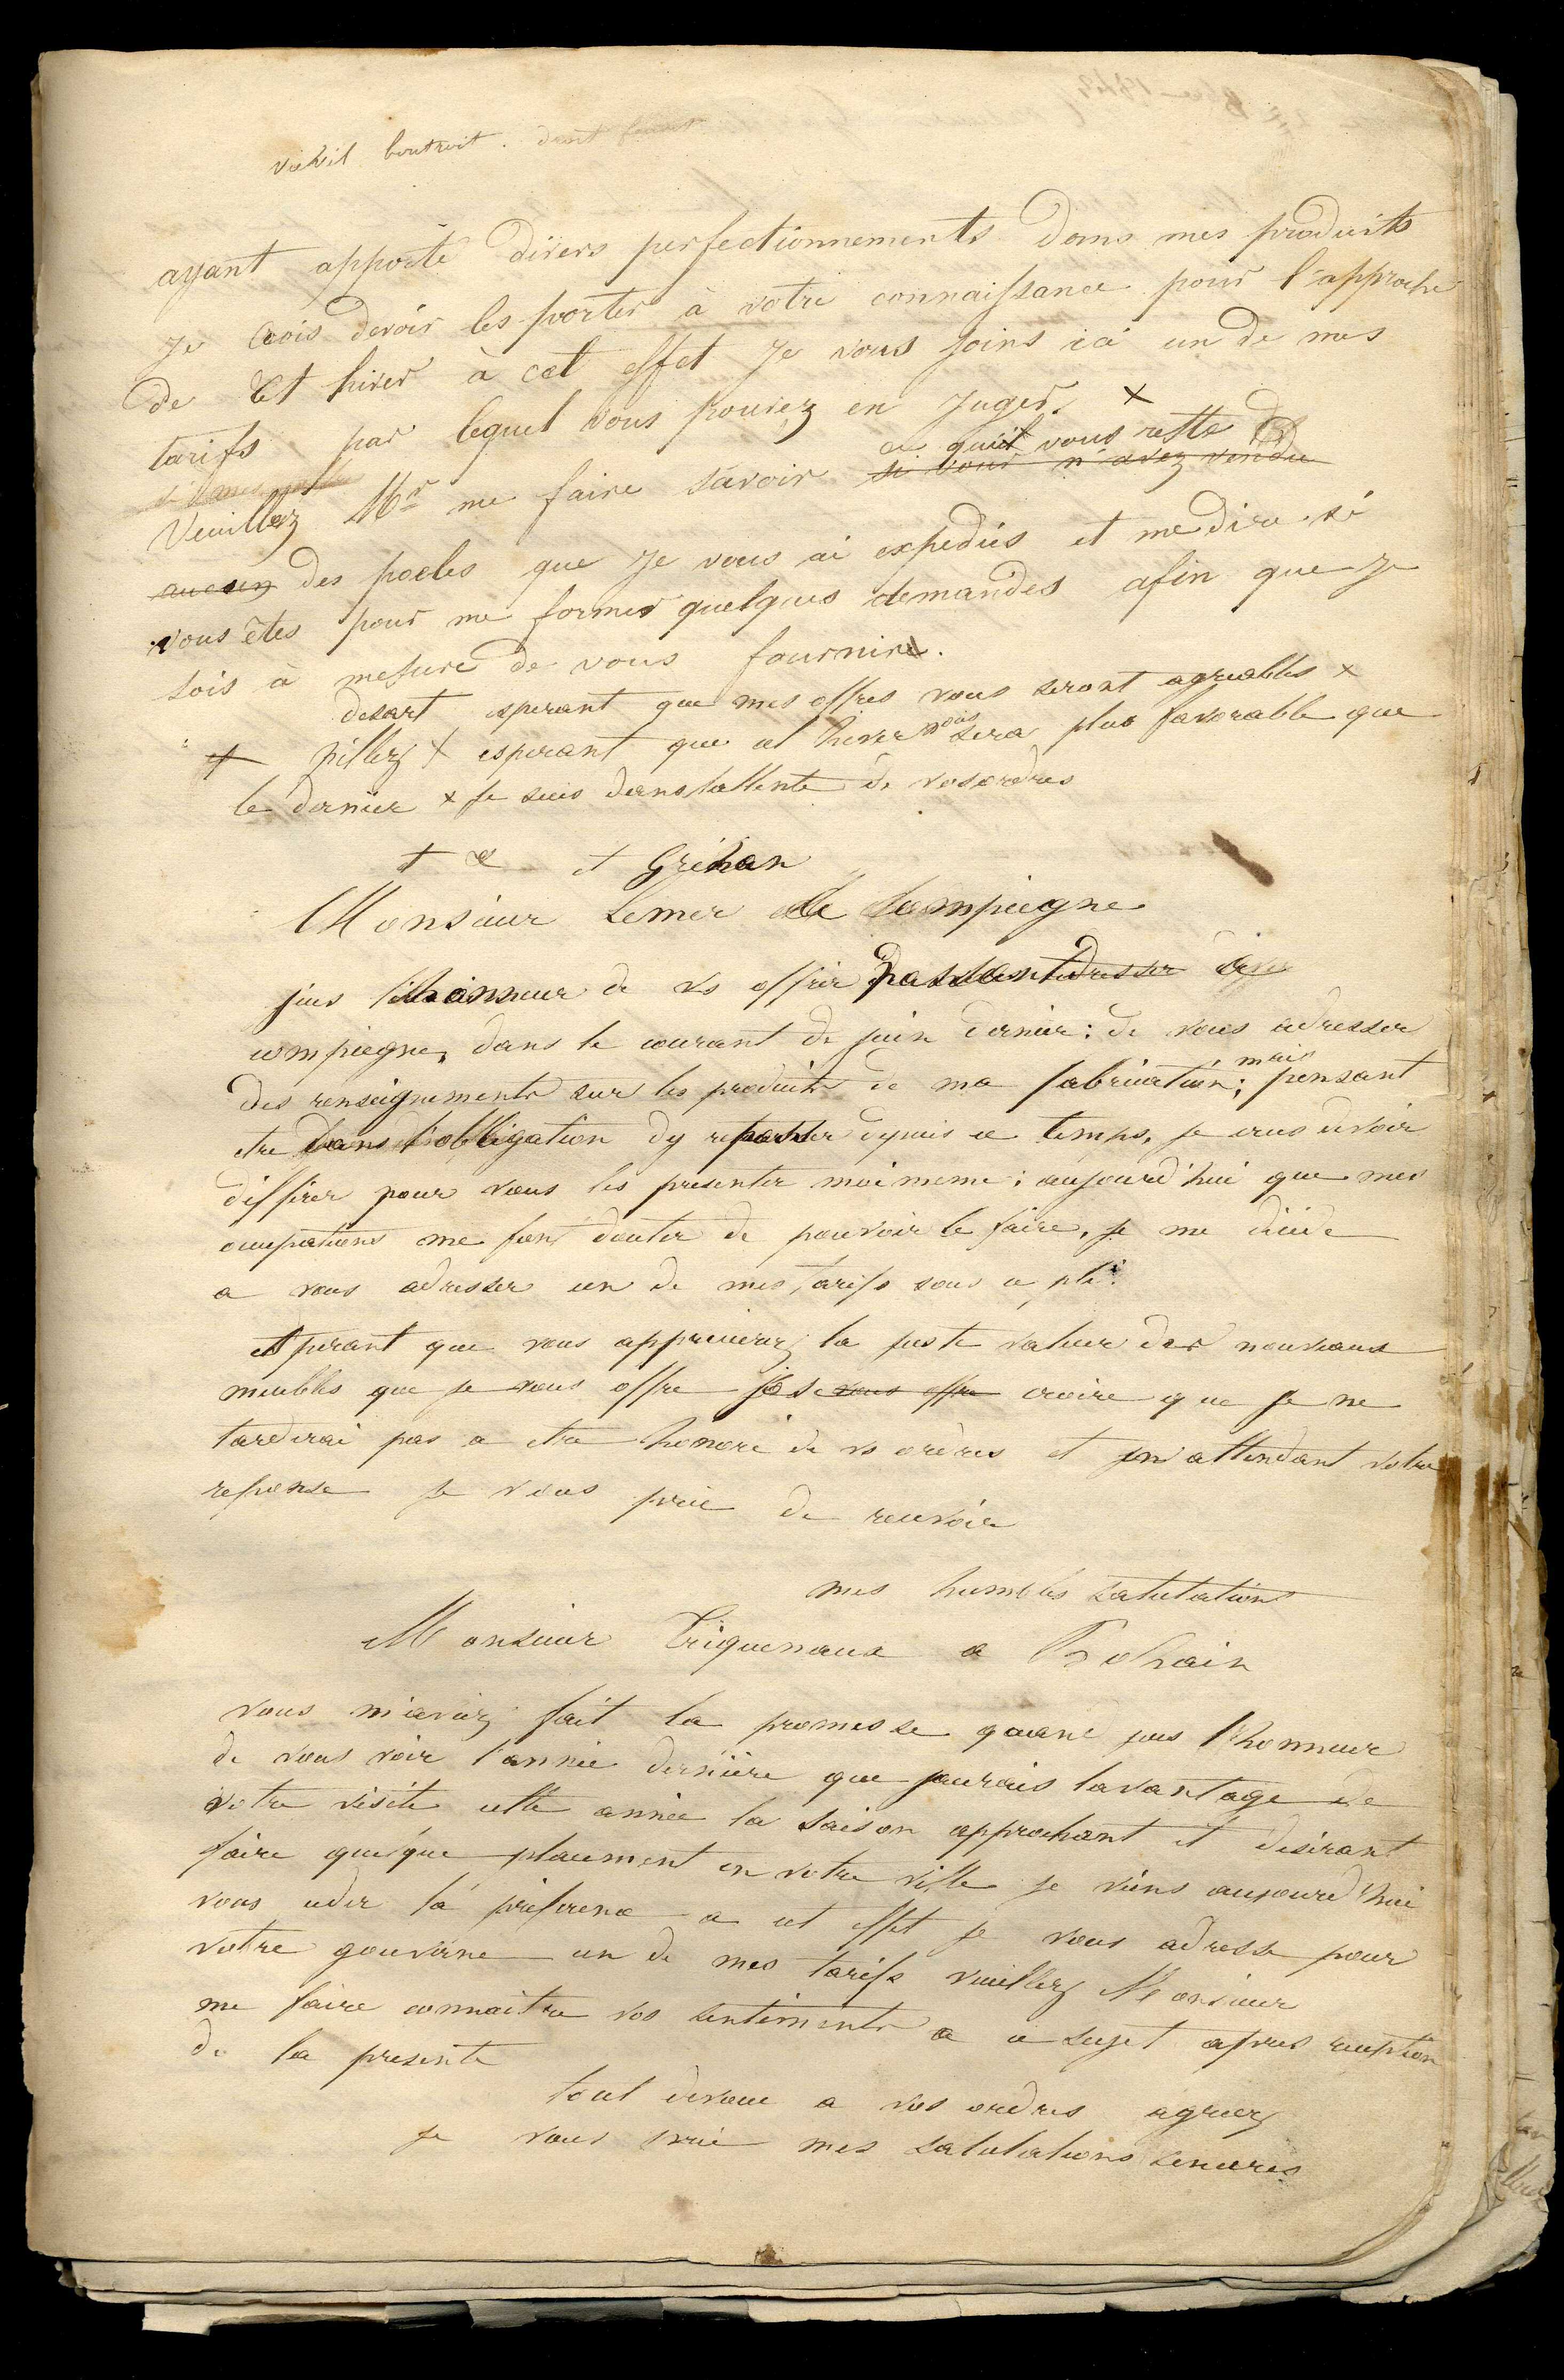 ayant apporté divers perfectionnements dans mes produits
je crois devoir les porter à votre connaissance pour l'approche
de cet hiver à cet effet je vous joins ici un de mes
tarifs par lequel vous pouvez en juger. x
ce qu'il vous reste
Veuillez Mr me faire savoir si vous n'avez vendu
aucun des poeles que je vous ai expediés et me dire si
vous êtes pour me former quelques demandes afin que je
sois à mesure de vous fournir.
desart esperant que mes offres vous seront agreables x
x pillez x esperant que cet hiver nous sera plus favorable que
le dernier x je suis dans lattente de vos ordres
et Grehan
Monsieur Lemer de Compiegne
jeus l'honneur de vs offrir passant
compiegne, dans le courant de juin dernier: de vous adresser
des renseignements sur les produits de ma fabrication; mais pensant
etre dans l'obligation dy repasser depuis ce temps, je crus devoir
differer pour vous les presenter moi meme; aujourd'hui que mes
occupations me font douter de pouvoir le faire, je me decide
a vous adresser un de mes tarifs sous ce pli.
Esperant que vous apprecierez la juste valeur des nouveaux
meubles que je vous offre jose vous offre croire que je ne
tarderai pas a etre honoré de vs ordres et en attendant votre
reponse je vous prie de recevoir
mes humbles salutations
Monsieur Triquenaux a Bohain
vous m'aviez fait la promesse quand jeus l'honneur
de vous voir l'année dernière que jaurais lavantage de
votre visite cette année la saison approchant et desirant
faire quelque placement en votre ville je viens aujourd'hui
vous ceder la preference a cet effet je vous adresse pour
votre gouverne un de mes tarifs veuillez Monsieur
me faire connaitre vos sentiments a ce sujet apres reception
de la presente
tout devoué a vos ordres agreez
je vous prie mes salutations sinceres